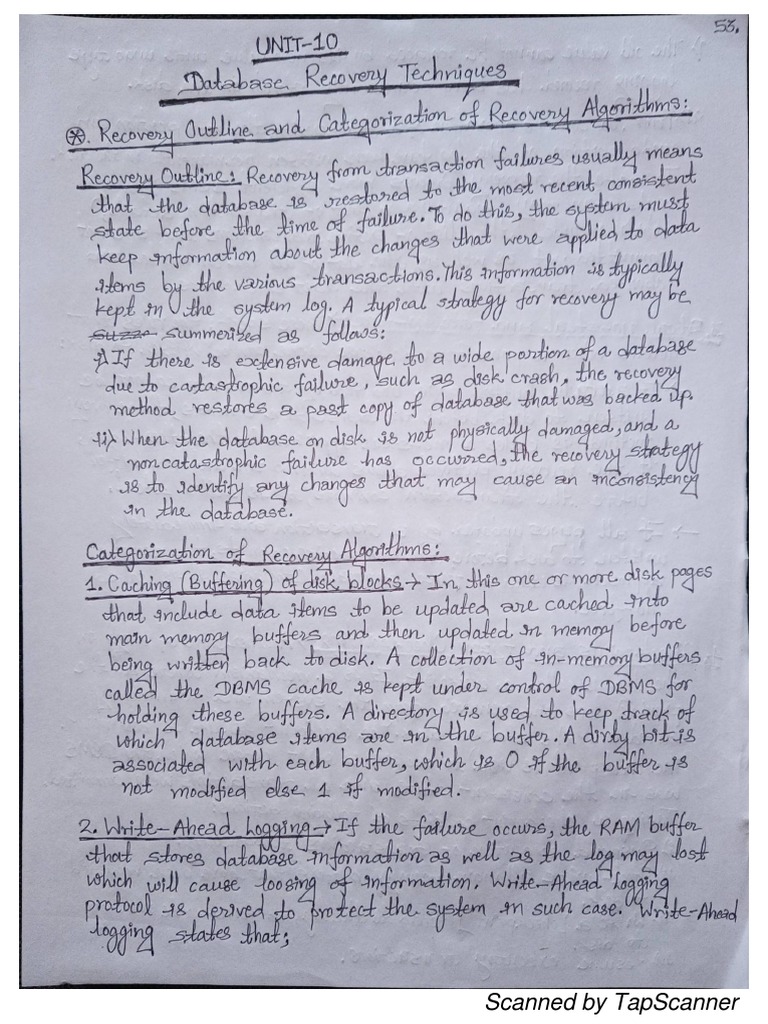 53.
UNIT-10
Database Recovery Techniques
⊛. Recovery Outline and Categorization of Recovery Algorithms:
Recovery Outline: Recovery from transaction failures usually means
that the database is restored to the most recent consistent
state before the time of failure. To do this, the system must
keep information about the changes that were applied to data
items by the various transactions. This information is typically
kept in the system log. A typical strategy for recovery may be
summerized as follows:
i) If there is extensive damage to a wide portion of a database
due to catastrophic failure, such as disk crash, the recovery
method restores a past copy of database that was backed up.
ii) When the database on disk is not physically damaged, and a
noncatastrophic failure has occurred, the recovery strategy
is to identify any changes that may cause an inconsistency
in the database.
Categorization of Recovery Algorithms:
1. Caching (Buffering) of disk blocks → In this one or more disk pages
that include data items to be updated are cached into
main memory buffers and then updated in memory before
being written back to disk. A collection of in-memory buffers
called the DBMS cache is kept under control of DBMS for
holding these buffers. A directory is used to keep track of
which database items are in the buffer. A dirty bit is
associated with each buffer, which is 0 if the buffer is
not modified else 1 if modified.
2. Write-Ahead Logging → If the failure occurs, the RAM buffer
that stores database information as well as the log may lost
which will cause loosing of information. Write-Ahead Logging
protocol is derived to protect the system in such case. Write-Ahead
logging states that;
Scanned by TapScanner